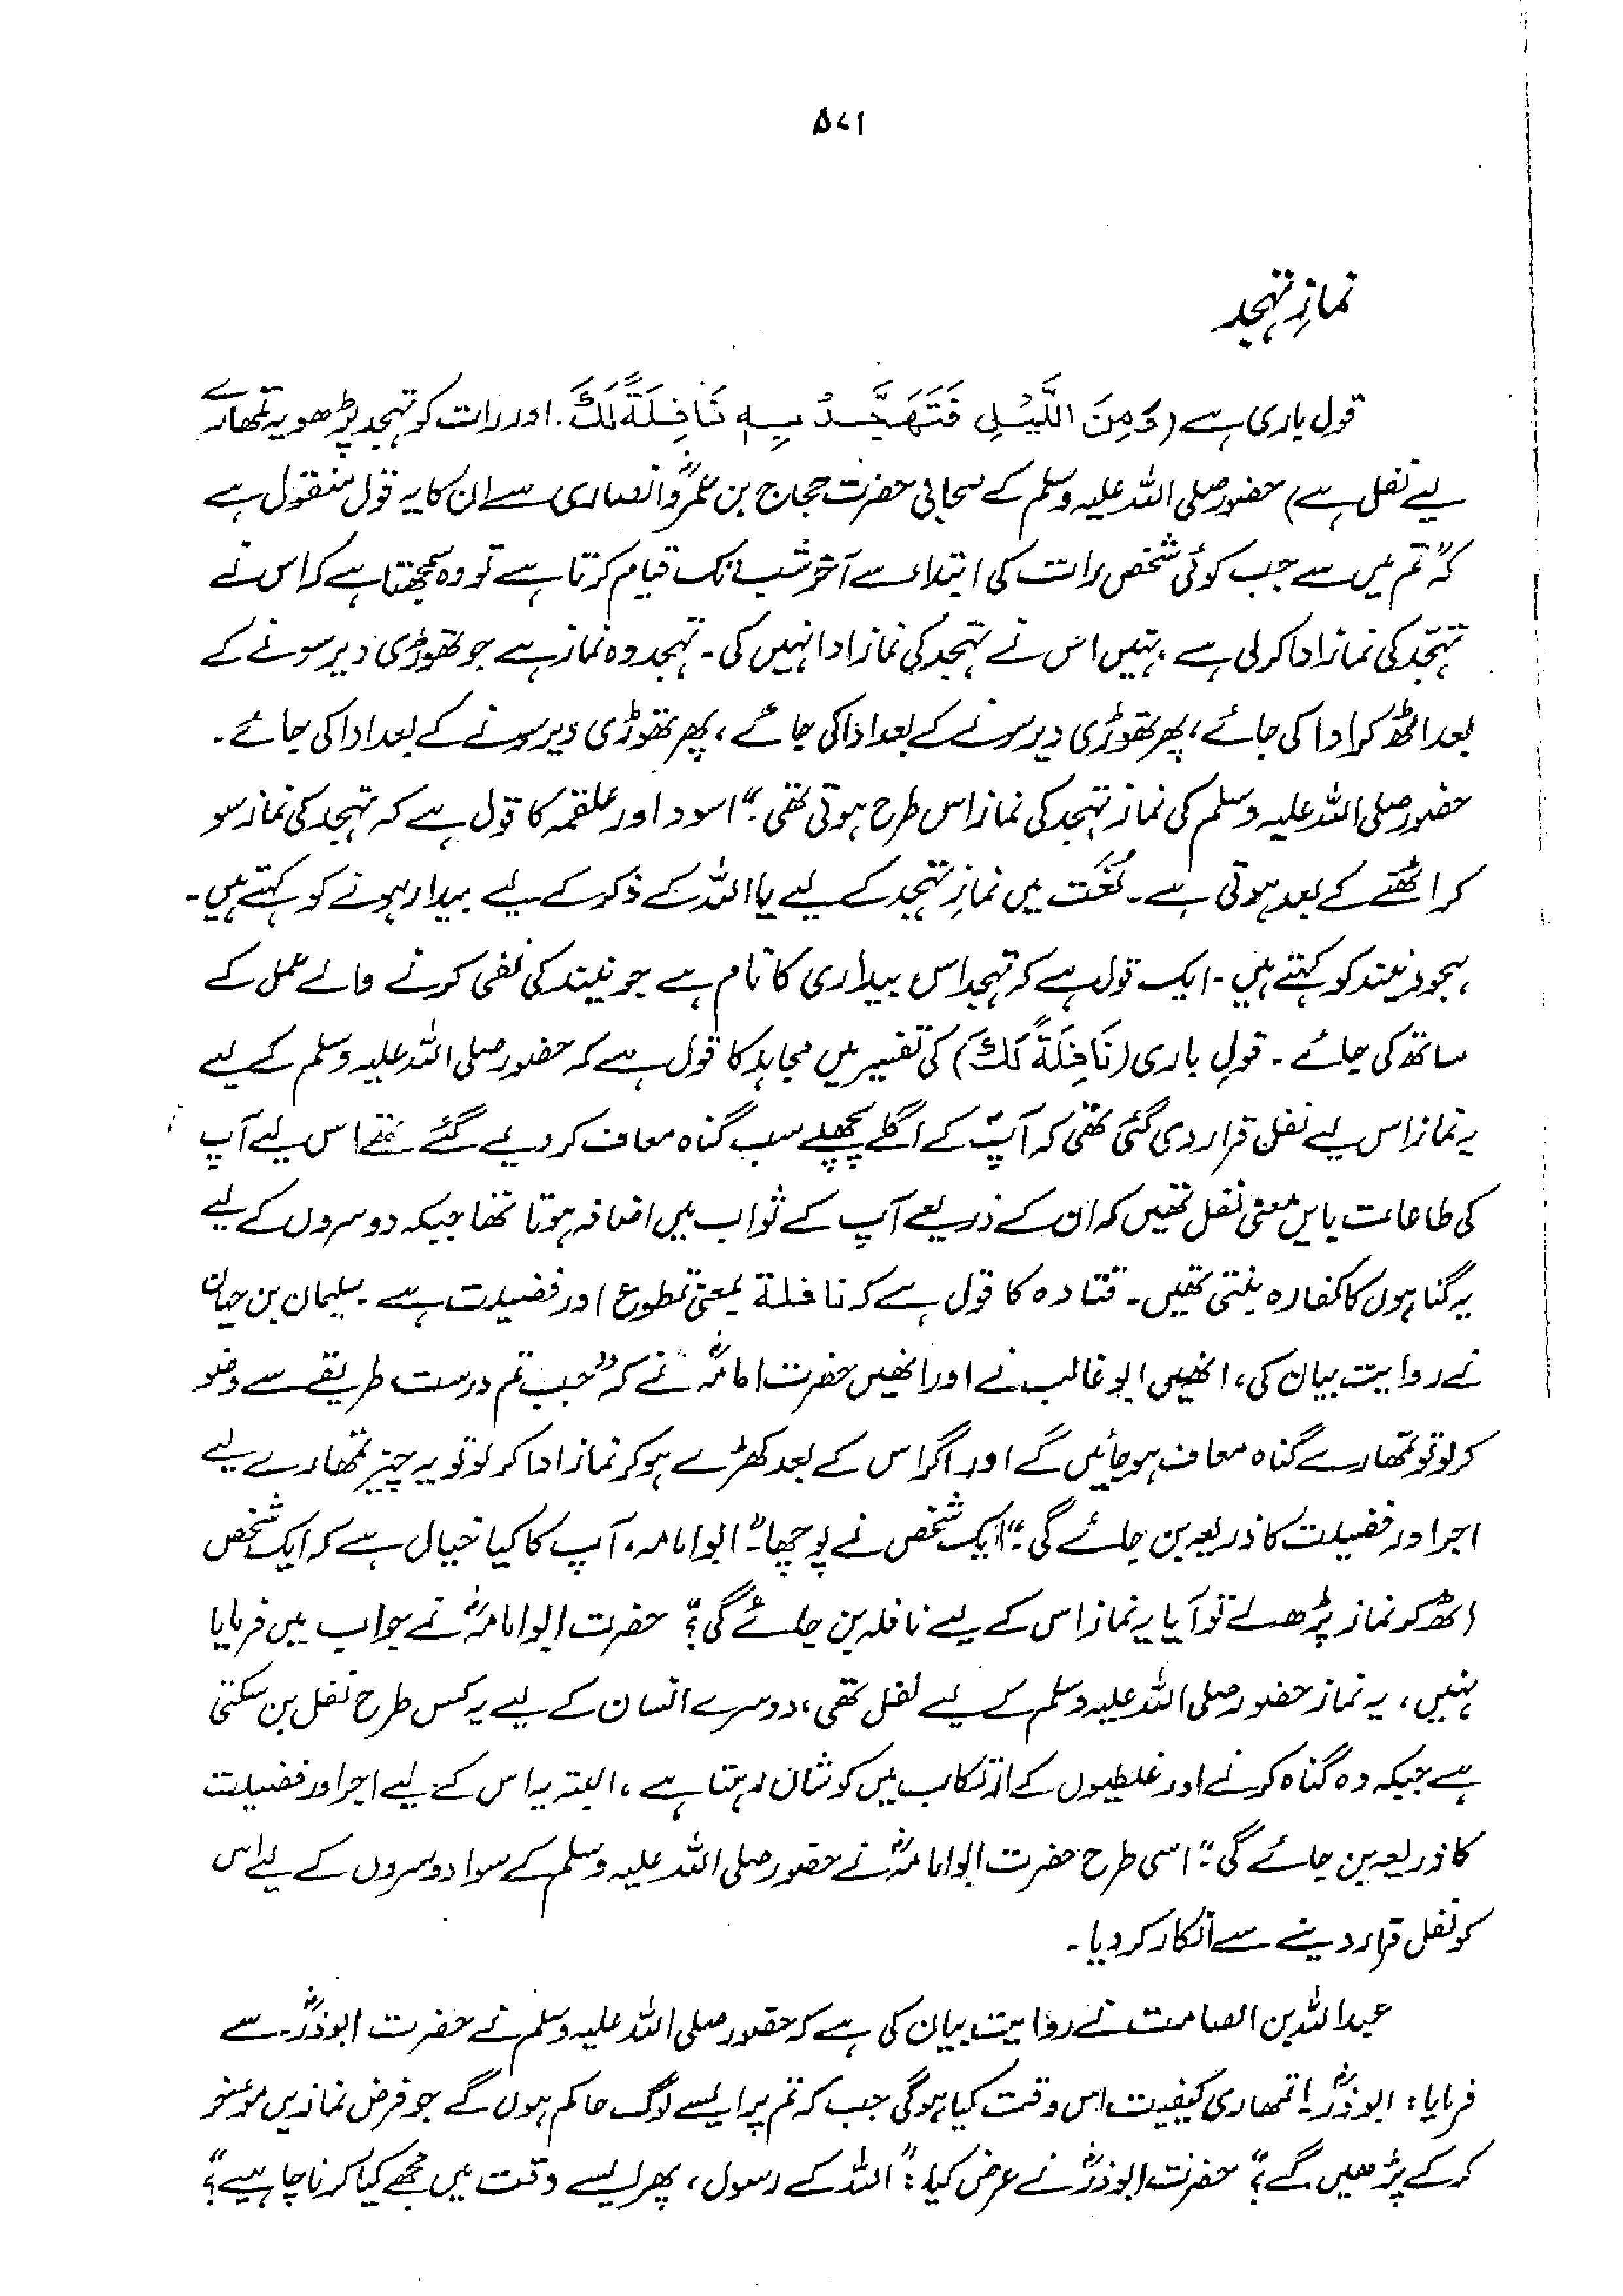 ۵۷۱
نمازِ تہجد
قول باری ہے (وَمِنَ اللَّيْلِ فَتَهَجَّدْ بِهٖ نَافِلَةً لَّكَ۔ اور رات کو تہجد پڑھو یہ تمھارے
لیے نفل ہے) حضور صلی اللہ علیہ وسلم کے صحابی حضرت حجاج بن عمروؓ انصاری سے ان کا یہ قول منقول ہے
کہ ”تم میں سے جب کوئی شخص رات کی ابتداء سے آخر شب تک قیام کرتا ہے تو وہ سمجھتا ہے کہ اس نے
تہجد کی نماز ادا کر لی ہے، نہیں اس نے تہجد کی نماز ادا نہیں کی۔ تہجد وہ نماز ہے جو تھوڑی دیر سونے کے
بعد اٹھ کر ادا کی جائے، پھر تھوڑی دیر سونے کے بعد ادا کی جائے، پھر تھوڑی دیر سونے کے بعد ادا کی جائے۔
حضور صلی اللہ علیہ وسلم کی نماز تہجد کی نماز اس طرح ہوتی تھی۔“ اسود اور علقمہ کا قول ہے کہ تہجد کی نماز سو
کر اٹھنے کے بعد ہوتی ہے۔ لُغت میں نمازِ تہجد کے لیے یا اللہ کے ذکر کے لیے بیدار ہونے کو کہتے ہیں۔
ہجود نیند کو کہتے ہیں۔ ایک قول ہے کہ تہجد اس بیداری کا نام ہے جو نیند کی نفی کرنے والے عمل کے
ساتھ کی جائے۔ قولِ باری (نَافِلَةً لَّكَ) کی تفسیر میں مجاہد کا قول ہے کہ حضور صلی اللہ علیہ وسلم کے لیے
یہ نماز اس لیے نفل قرار دی گئی تھی کہ آپؐ کے اگلے پچھلے سب گناہ معاف کر دیے گئے تھے اس لیے آپ
کی طاعات بایں معنی نفل تھیں کہ ان کے ذریعے آپ کے ثواب میں اضافہ ہوتا تھا جبکہ دوسروں کے لیے
یہ گناہوں کا کفارہ بنتی تھیں۔ قتادہ کا قول ہے کہ نافلة بمعنی تطوع اور فضیلت ہے۔ سلیمان بن حیان
نے روایت بیان کی، انھیں ابو غالب نے اور انھیں حضرت امامہؓ نے کہ ”جب تم درست طریقے سے وضو
کر لو تو تمھارے گناہ معاف ہو جائیں گے اور اگر اس کے بعد کھڑے ہو کر نماز ادا کر لو تو یہ چیز تمھارے لیے
اجر اور فضیلت کا ذریعہ بن جائے گی۔“ ایک شخص نے پوچھا۔ ”ابوامامہ، آپ کا کیا خیال ہے کہ ایک شخص
اٹھ کر نماز پڑھ لے تو آیا یہ نماز اس کے لیے نافلہ بن جائے گی؟“ حضرت ابوامامہؓ نے جواب میں فرمایا
نہیں، یہ نماز حضور صلی اللہ علیہ وسلم کے لیے نفل تھی، دوسرے انسان کے لیے یہ کس طرح نفل بن سکتی
ہے جبکہ وہ گناہ کرنے اور غلطیوں کے ارتکاب میں کوشاں رہتا ہے، البتہ یہ اس کے لیے اجر اور فضیلت
کا ذریعہ بن جائے گی۔“ اسی طرح حضرت ابوامامہؓ نے حضور صلی اللہ علیہ وسلم کے سوا دوسروں کے لیے اس
کو نفل قرار دینے سے انکار کر دیا۔
عبداللہ بن الصامت نے روایت بیان کی ہے کہ حضور صلی اللہ علیہ وسلم نے حضرت ابوذرؓ سے
فرمایا: ابوذرؓ! تمھاری کیفیت اس وقت کیا ہوگی جب کہ تم پر ایسے لوگ حاکم ہوں گے جو فرض نمازیں موخر
کر کے پڑھیں گے؟“ حضرت ابوذرؓ نے عرض کیا: ”اللہ کے رسول، پھر ایسے وقت میں مجھے کیا کرنا چاہیے؟“